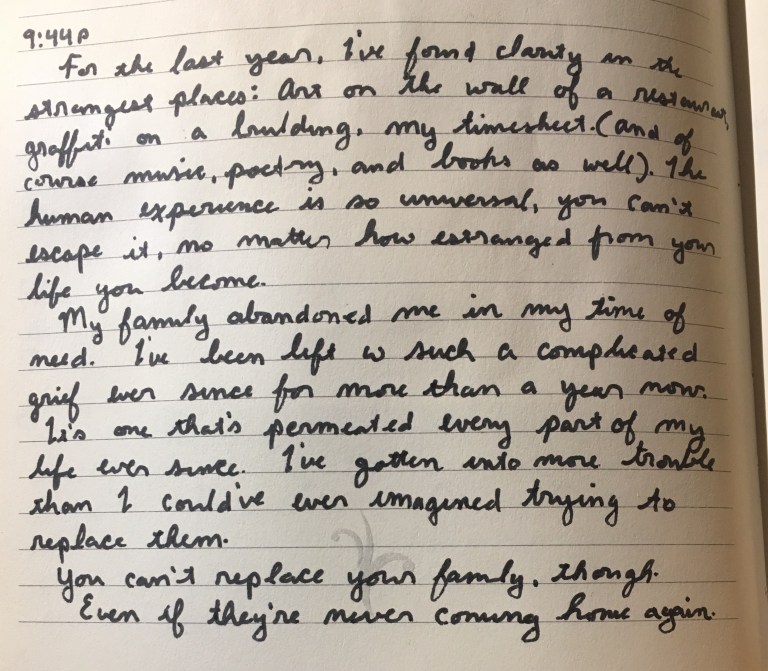 9:44P
For the last year, I've found clarity in the
strangest places: Art on the wall of a restaurant,
graffiti on a building, my timesheet. (and of
course music, poetry, and books as well). The
human experience is so universal, you can't
escape it, no matter how estranged from your
life you become.
My family abandoned me in my time of
need. I've been left w such a complicated
grief ever since for more than a year now.
It's one that's permeated every part of my
life ever since. I've gotten into more trouble
than I could've ever imagined trying to
replace them.
You can't replace your family, though.
Even if they're never coming home again.